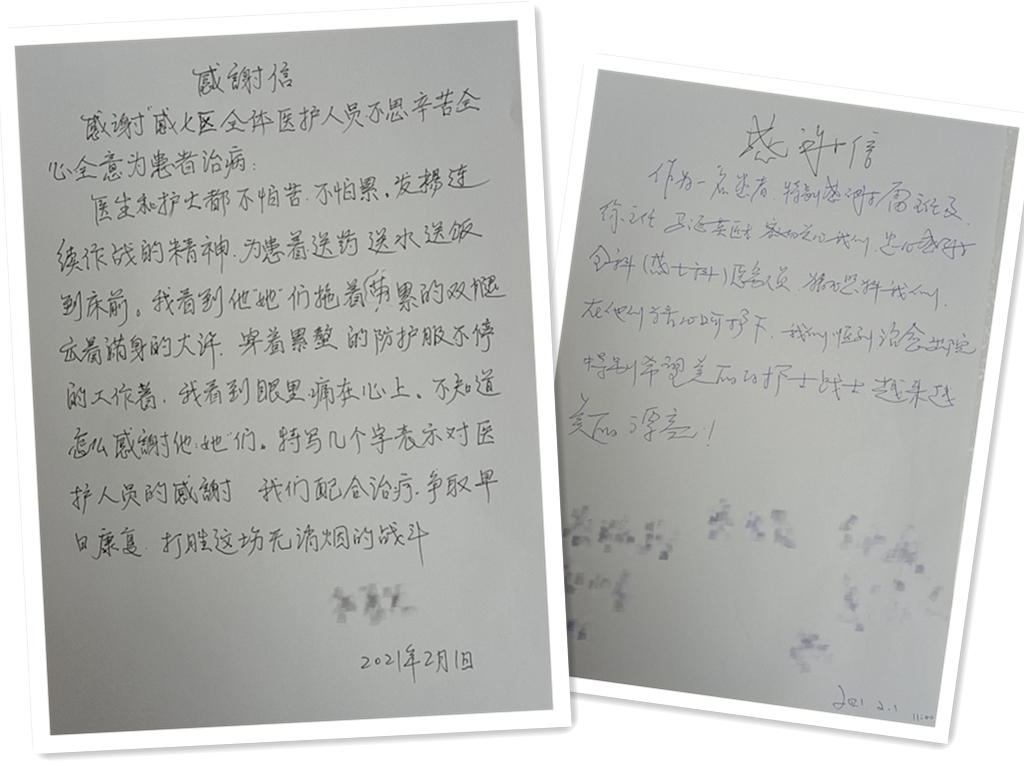 感謝信
感谢"感七区全体医护人员.不思辛苦全
心全意为患者治病:
医生和护士都不怕苦.不怕累.发楊连
续作战的精神.为患着送药送水送饭
到床前。我看到他"她"们拖着劳累的双腿
去着满身的大汗.穿着累整的防护服不停
的工作着.我看到眼里痛在心上.不知道
怎么感謝他"她"们。特写几个字表示对医
护人员的感謝 我们配合治疗.争取早
日康复.打胜这场无消烟的战斗
2021年2月1日
感谢信
作为一名患者.特别感谢雷主任及
徐主任
全科(感七科)医务人员
在他们精心呵护下.我们恒到治愈出院
特别希望美丽的护士战士越来越
美丽漂亮!
2021.2.1